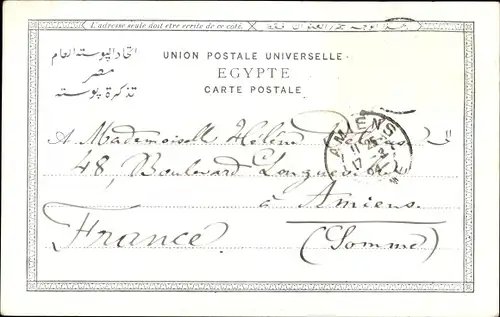 L'adresse seule doit être écrite de ce côté.
اتحاد البوسته العام
مصر
تذكرة بوسته
UNION POSTALE UNIVERSELLE
EGYPTE
CARTE POSTALE
A Mademoiselle Hélène
48, Boulevard Longueville
à Amiens
France
(Somme)
AMIENS